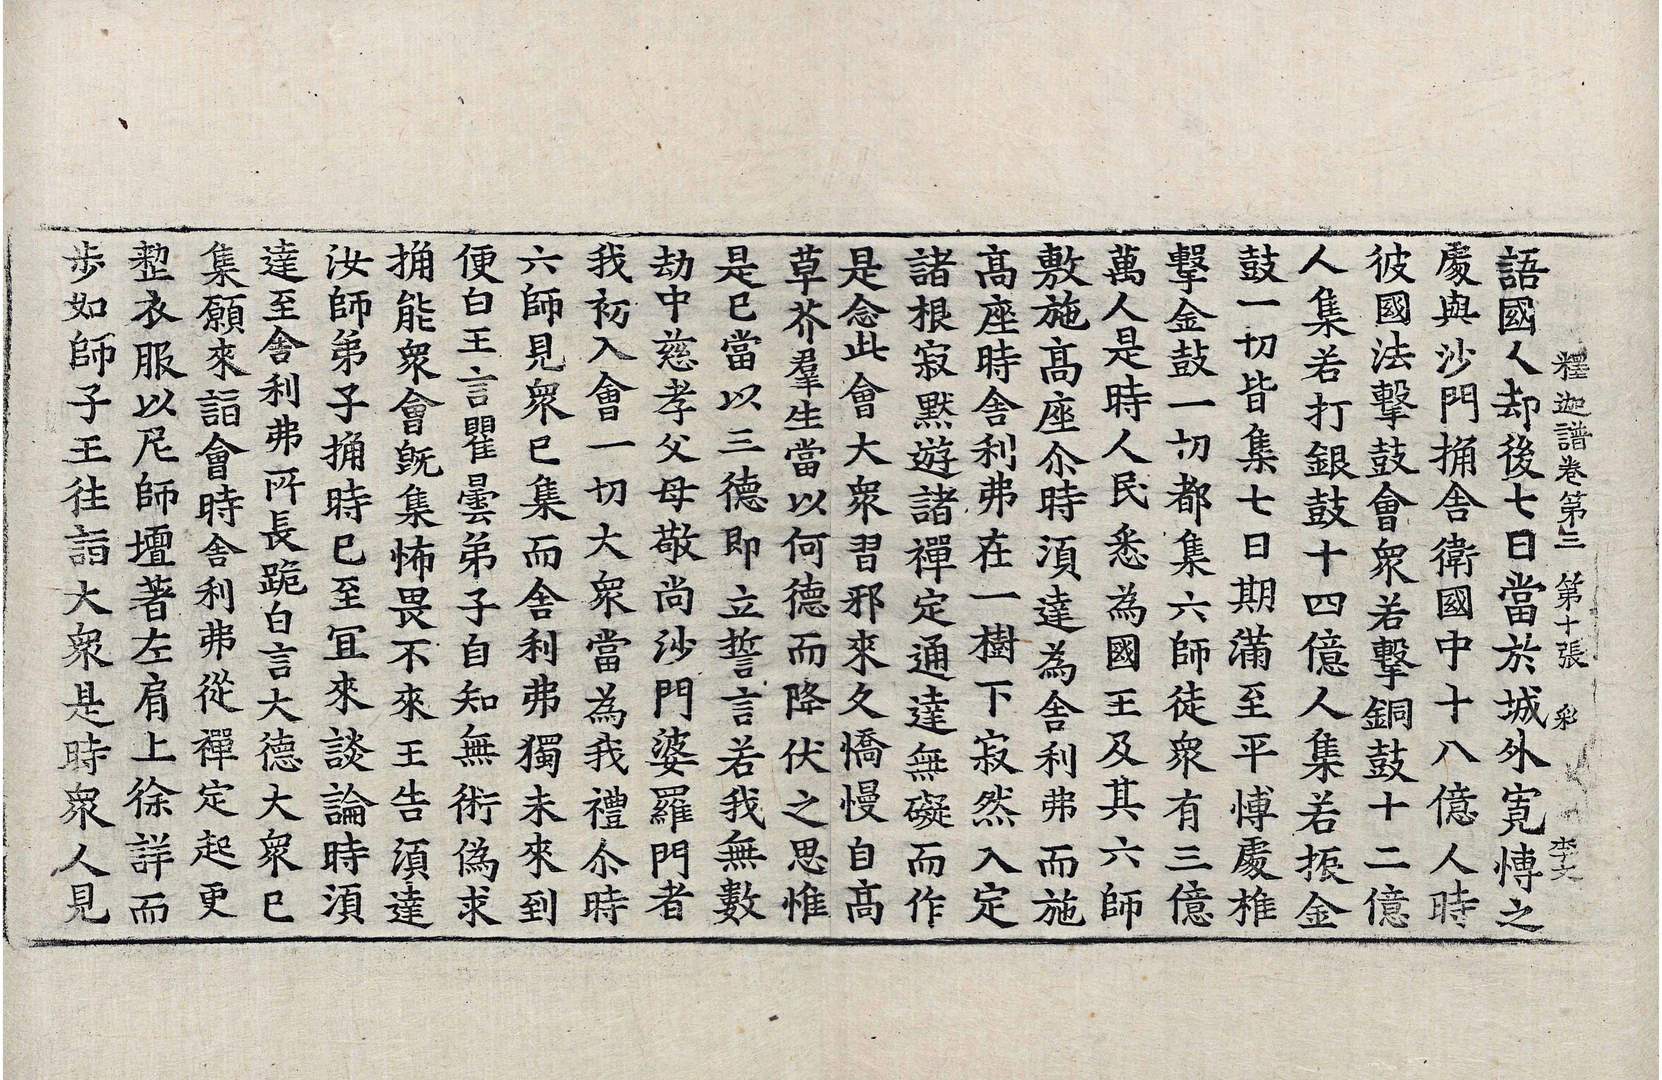 釋迦譜卷第三 第十張 彩 李文
語國人却後七日當於城外寬愽之
處與沙門捔舍衛國中十八億人時
彼國法擊鼓會衆若擊銅鼓十二億
人集若打銀鼓十四億人集若振金
鼓一切皆集七日期滿至平愽處椎
擊金鼓一切都集六師徒衆有三億
萬人是時人民悉為國王及其六師
敷施高座尒時湏達為舍利弗而施
高座時舍利弗在一樹下寂然入定
諸根寂黙遊諸禪定通達無礙而作
是念此會大衆習邪來久憍慢自高
草芥羣生當以何德而降伏之思惟
是已當以三德即立誓言若我無數
劫中慈孝父母敬尚沙門婆羅門者
我初入會一切大衆當為我禮尒時
六師見衆已集而舍利弗獨未來到
便白王言瞿曇弟子自知無術偽求
捔能衆會旣集怖畏不來王告湏達
汝師弟子捔時已至冝來談論時湏
達至舍利弗所長跪白言大德大衆已
集願來詣會時舍利弗從禪定起更
整衣服以尼師壇著左肩上徐詳而
歩如師子王往詣大衆是時衆人見